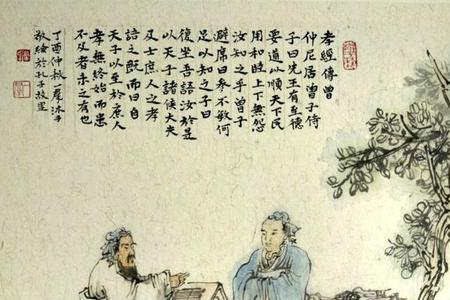 孝經傳曾
仲尼居曾子侍
子曰先王有至德
要道以順天下民
用和睦上下無怨
汝知之乎曾子
避席曰參不敏何
足以知之子曰
復坐吾語汝於是
以天子諸侯大夫
及士庶人之孝
語之既而曰自
天子以至於庶人
孝無終始而患
不及者未之有也
丁酉仲秋沐手
敬繪於孔子故里